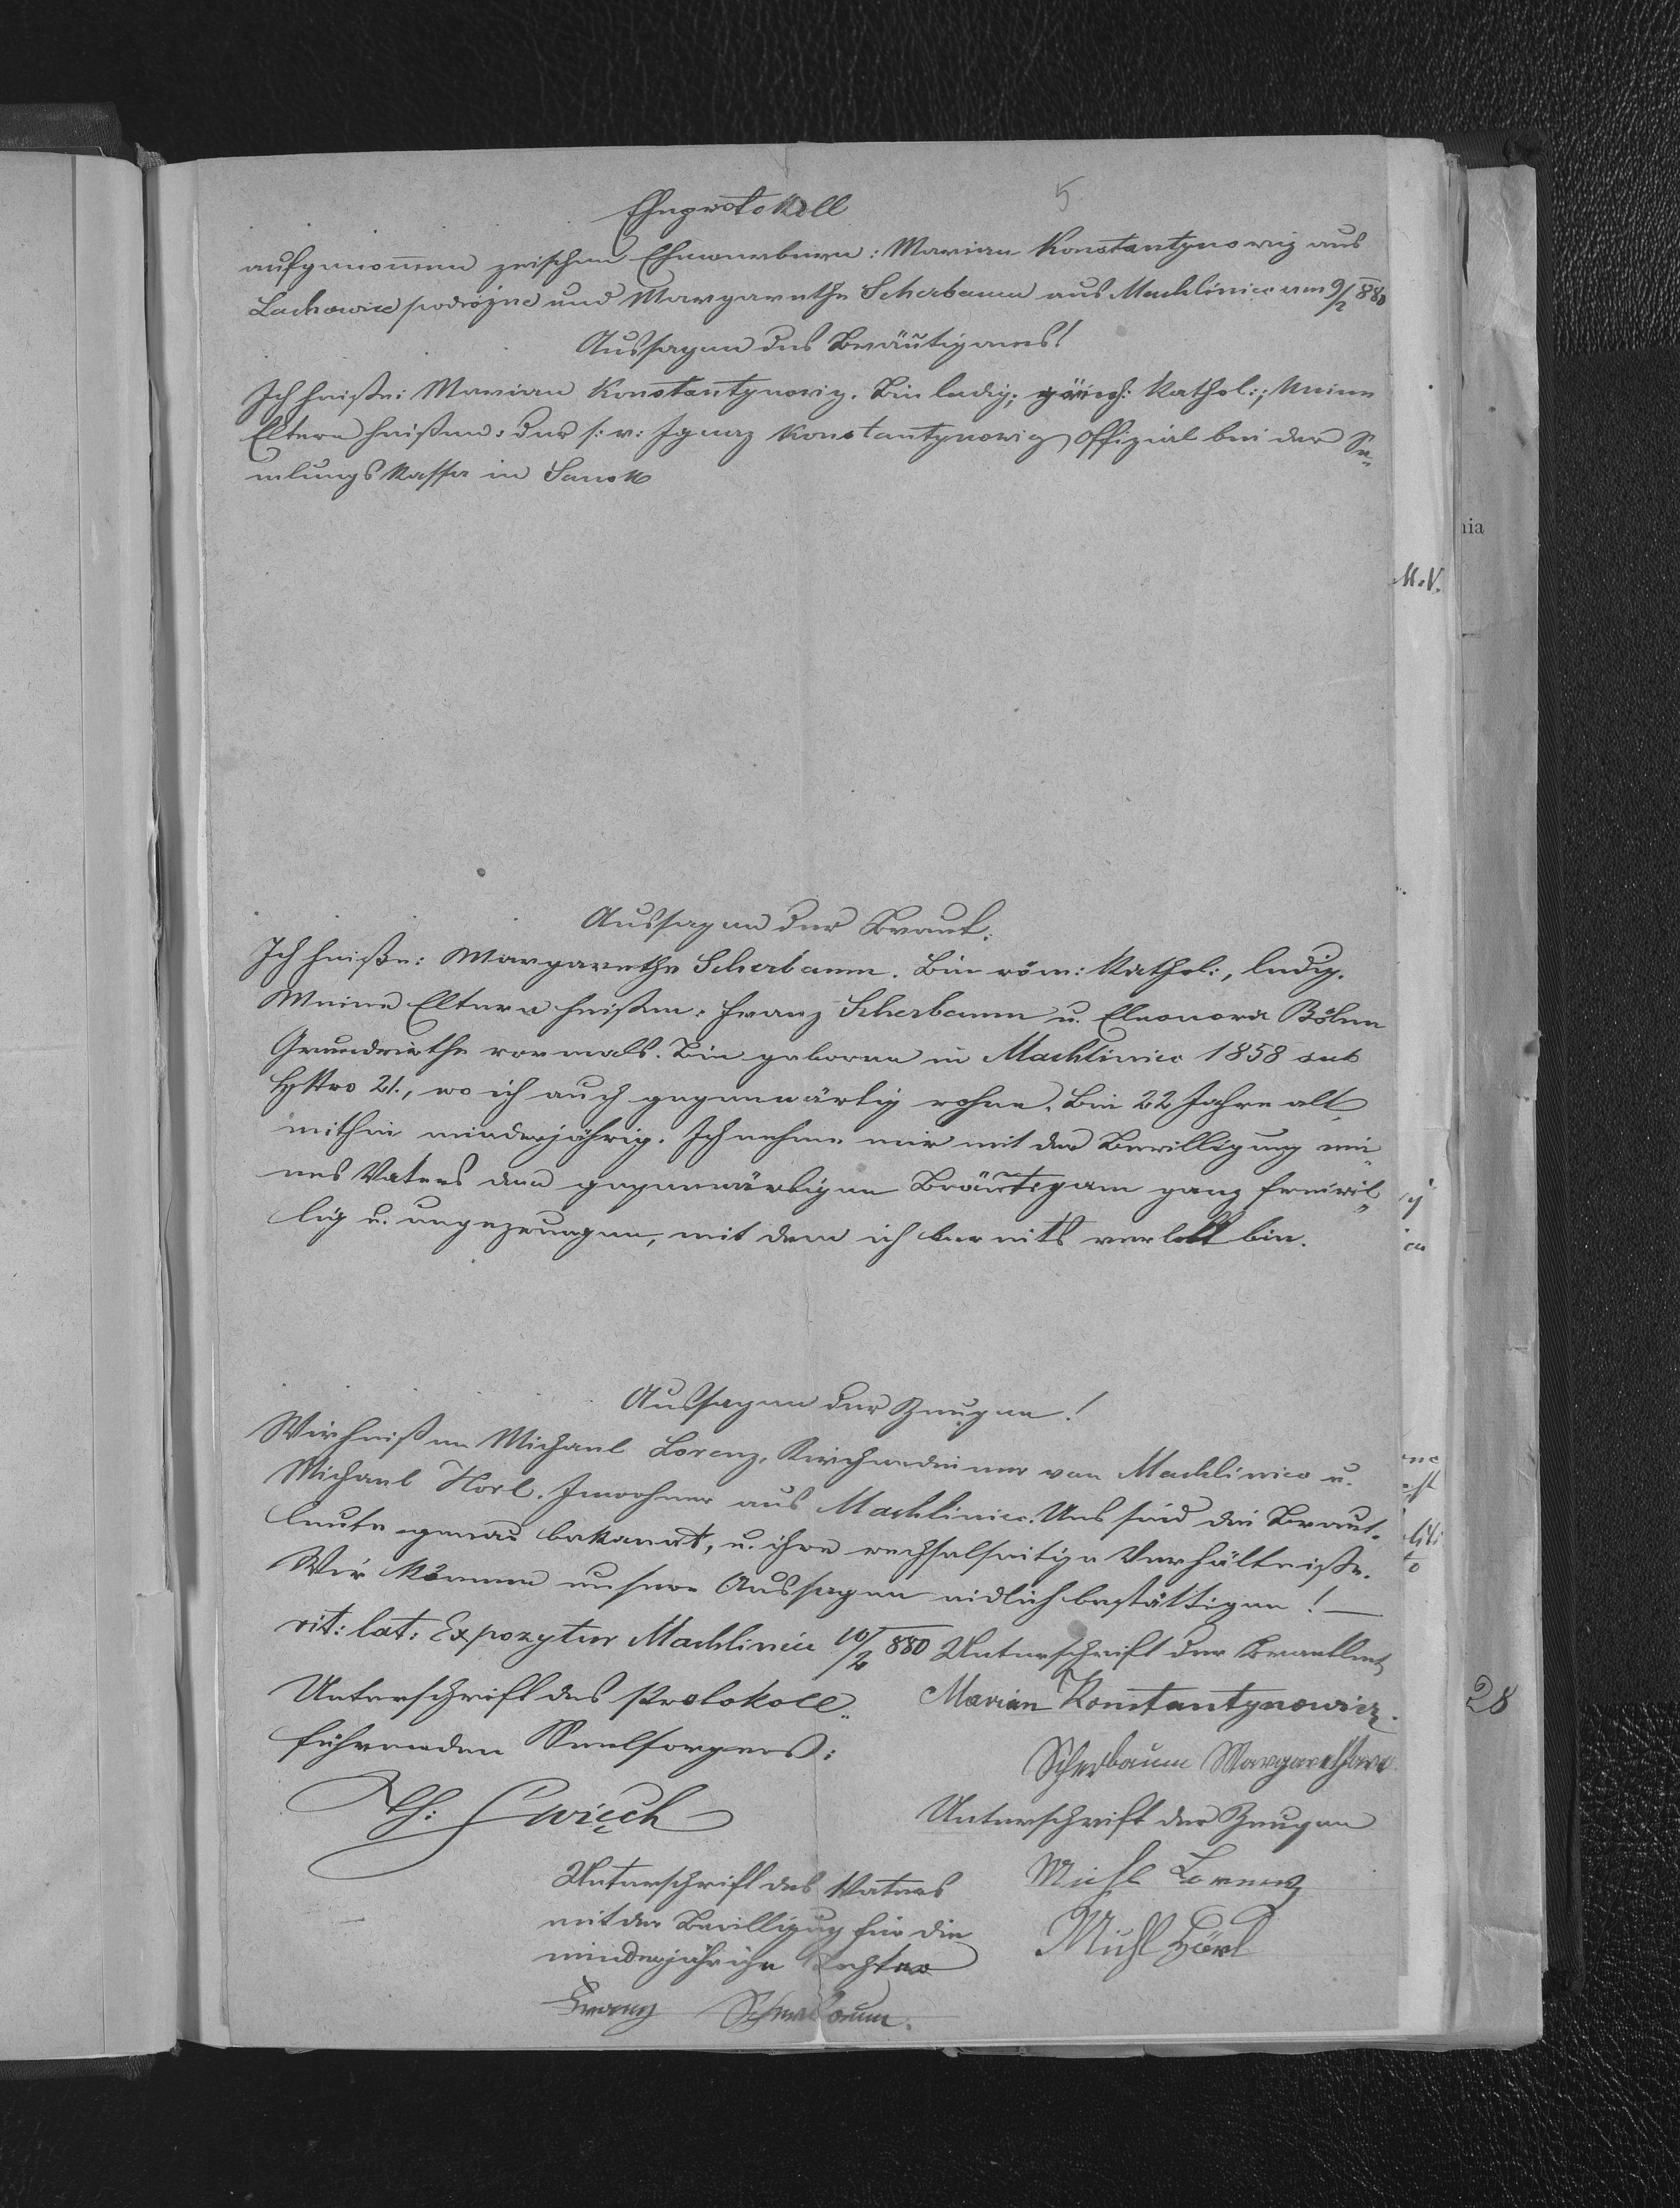 5
Eheprotokoll
aufgenommen zwischen Ehewerbern: Marian Konstantynowicz aus
Lachowice podróżne und Margarethe Scherbaum aus Machliniec am 9/2 880
Aussagen des Bräutigams!
Ich heiße: Marian Konstantynowicz. Bin ledig; kathol:; Meine
Eltern heißen: der s: v: Ignaz Konstantynowicz Offizial bei der Sa„
mlungskassa in Sanok
M.V.
Aussagen der Braut.
Ich heiße: Margarethe Scherbaum. Bin röm: kathol:, ledig.
Meine Eltern heißen: Franz Scherbaum u. Eleonora Böhm
Grundwirthe vormals. Bin geboren in Machliniec 1858 sub
HNro 21., wo ich auch gegenwärtig wohne. Bin 22 Jahre alt
mithin minderjährig. Ich nehme mir mit der Bewilligung mei„
nes Vaters den gegenwärtigen Bräutigam ganz freiwil„
lig u. ungezwungen, mit dem ich bereits verlobt bin.
Aussagen der Zeugen!
Wir heißen Michael Lorenz, Kirchendiener von Machliniec u.
Michael Hörl. Inwohner aus Machliniec. Uns sind die Braut-
leute genau bekannt, u. ihre wechselseitige Verhältniße.
Wir können unsere Aussagen eidlich bestättigen! —
rit: lat: Expozytur Machliniec 10/2 880
Unterschrift der Brautleute
Unterschrift des Protokoll„
führenden Seelsorgers:
Marian Konstantynowicz.
Scherbaum Margaretha
Th: Ćwięch
Unterschrift der Zeugen
Michl Lorenz
Michl Hörl
Unterschrift des Vaters
mit der Bewilligung für die
minderjährige Tochter
Franz Scherbaum.
28
nia